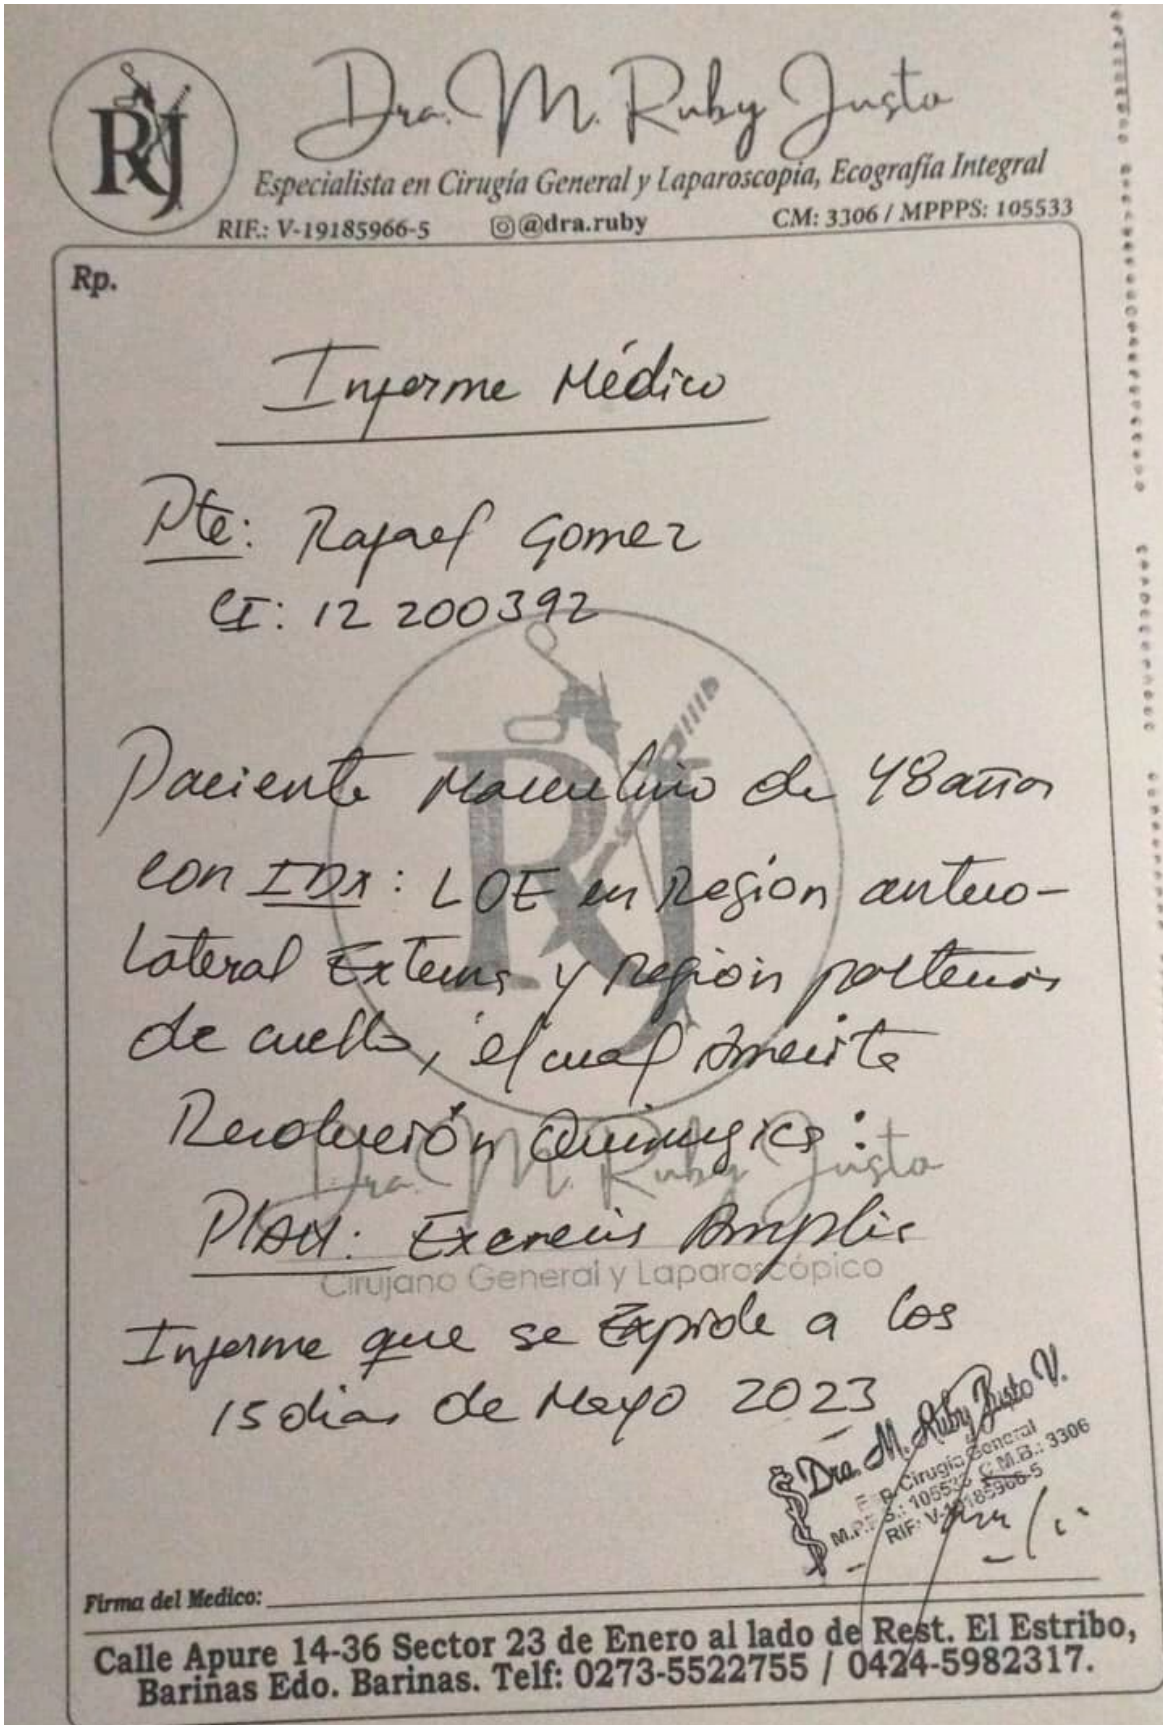 RJ
Dra. M. Ruby Justo
Especialista en Cirugía General y Laparoscopia, Ecografía Integral
RIF.: V-19185966-5 @dra.ruby CM: 3306 / MPPPS: 105533
Rp.
Informe Médico
Pte: Rafael Gomez
CI: 12 200392
Paciente Masculino de 48 años
con IDx: LOE en Región antero-
lateral Externa y Región posterior
de cuello, el cual amerita
Resolución Quirurgica:
Dra. M. Ruby Justo
PLAN: Exeresis Amplia
Cirujano General y Laparoscópico
Informe que se Expide a los
15 dias de Mayo 2023
Dra. M. Ruby Justo V.
Esp. Cirugía General
M.P.P.S.: 105533 C.M.B.: 3306
RIF: V-19185966-5
Firma del Medico:
Calle Apure 14-36 Sector 23 de Enero al lado de Rest. El Estribo,
Barinas Edo. Barinas. Telf: 0273-5522755 / 0424-5982317.